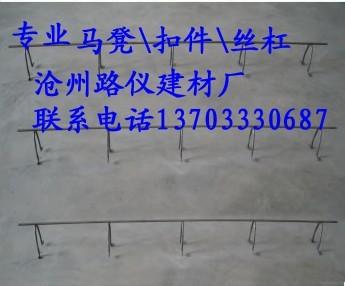 专业马凳\扣件\丝杠
沧州路仪建材厂
联系电话13703330687